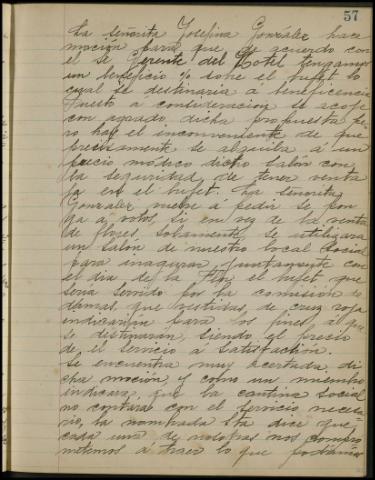 57
La señorita Josefina González hace
moción para que de acuerdo con
el Sr. Gerente del Hotel tengamos
un beneficio % sobre el bufet lo
cual se destinaria a beneficencia
Puesto a consideracion se acoje
con agrado dicha propuesta pe
ro hay el inconveniente de que
precisamente se alquila á un
precio módico dicho salón con
la seguridad de tener venta
ja en el bufet. La señorita
Gonzalez vuelve á pedir se pon
ga á votos, si en vez de la venta
de flores, solamente se utilizara
un salón de nuestro local social
para inaugurar, juntamente con
el dia de la Flor el bufet, que
seria servido por la comisión de
damas, que vestidas de cruz roja
indicarian para los fines al que
se destinarán, siendo el precio
de el servicio á satisfacción.
Se encuentra muy acertada di
cha moción y como un miembro
indicara que la cantina social
no contara con el servicio necesa
rio, la nombrada Sta dice que
cada una de nosotras nos compro
metemos á traer lo que podamos